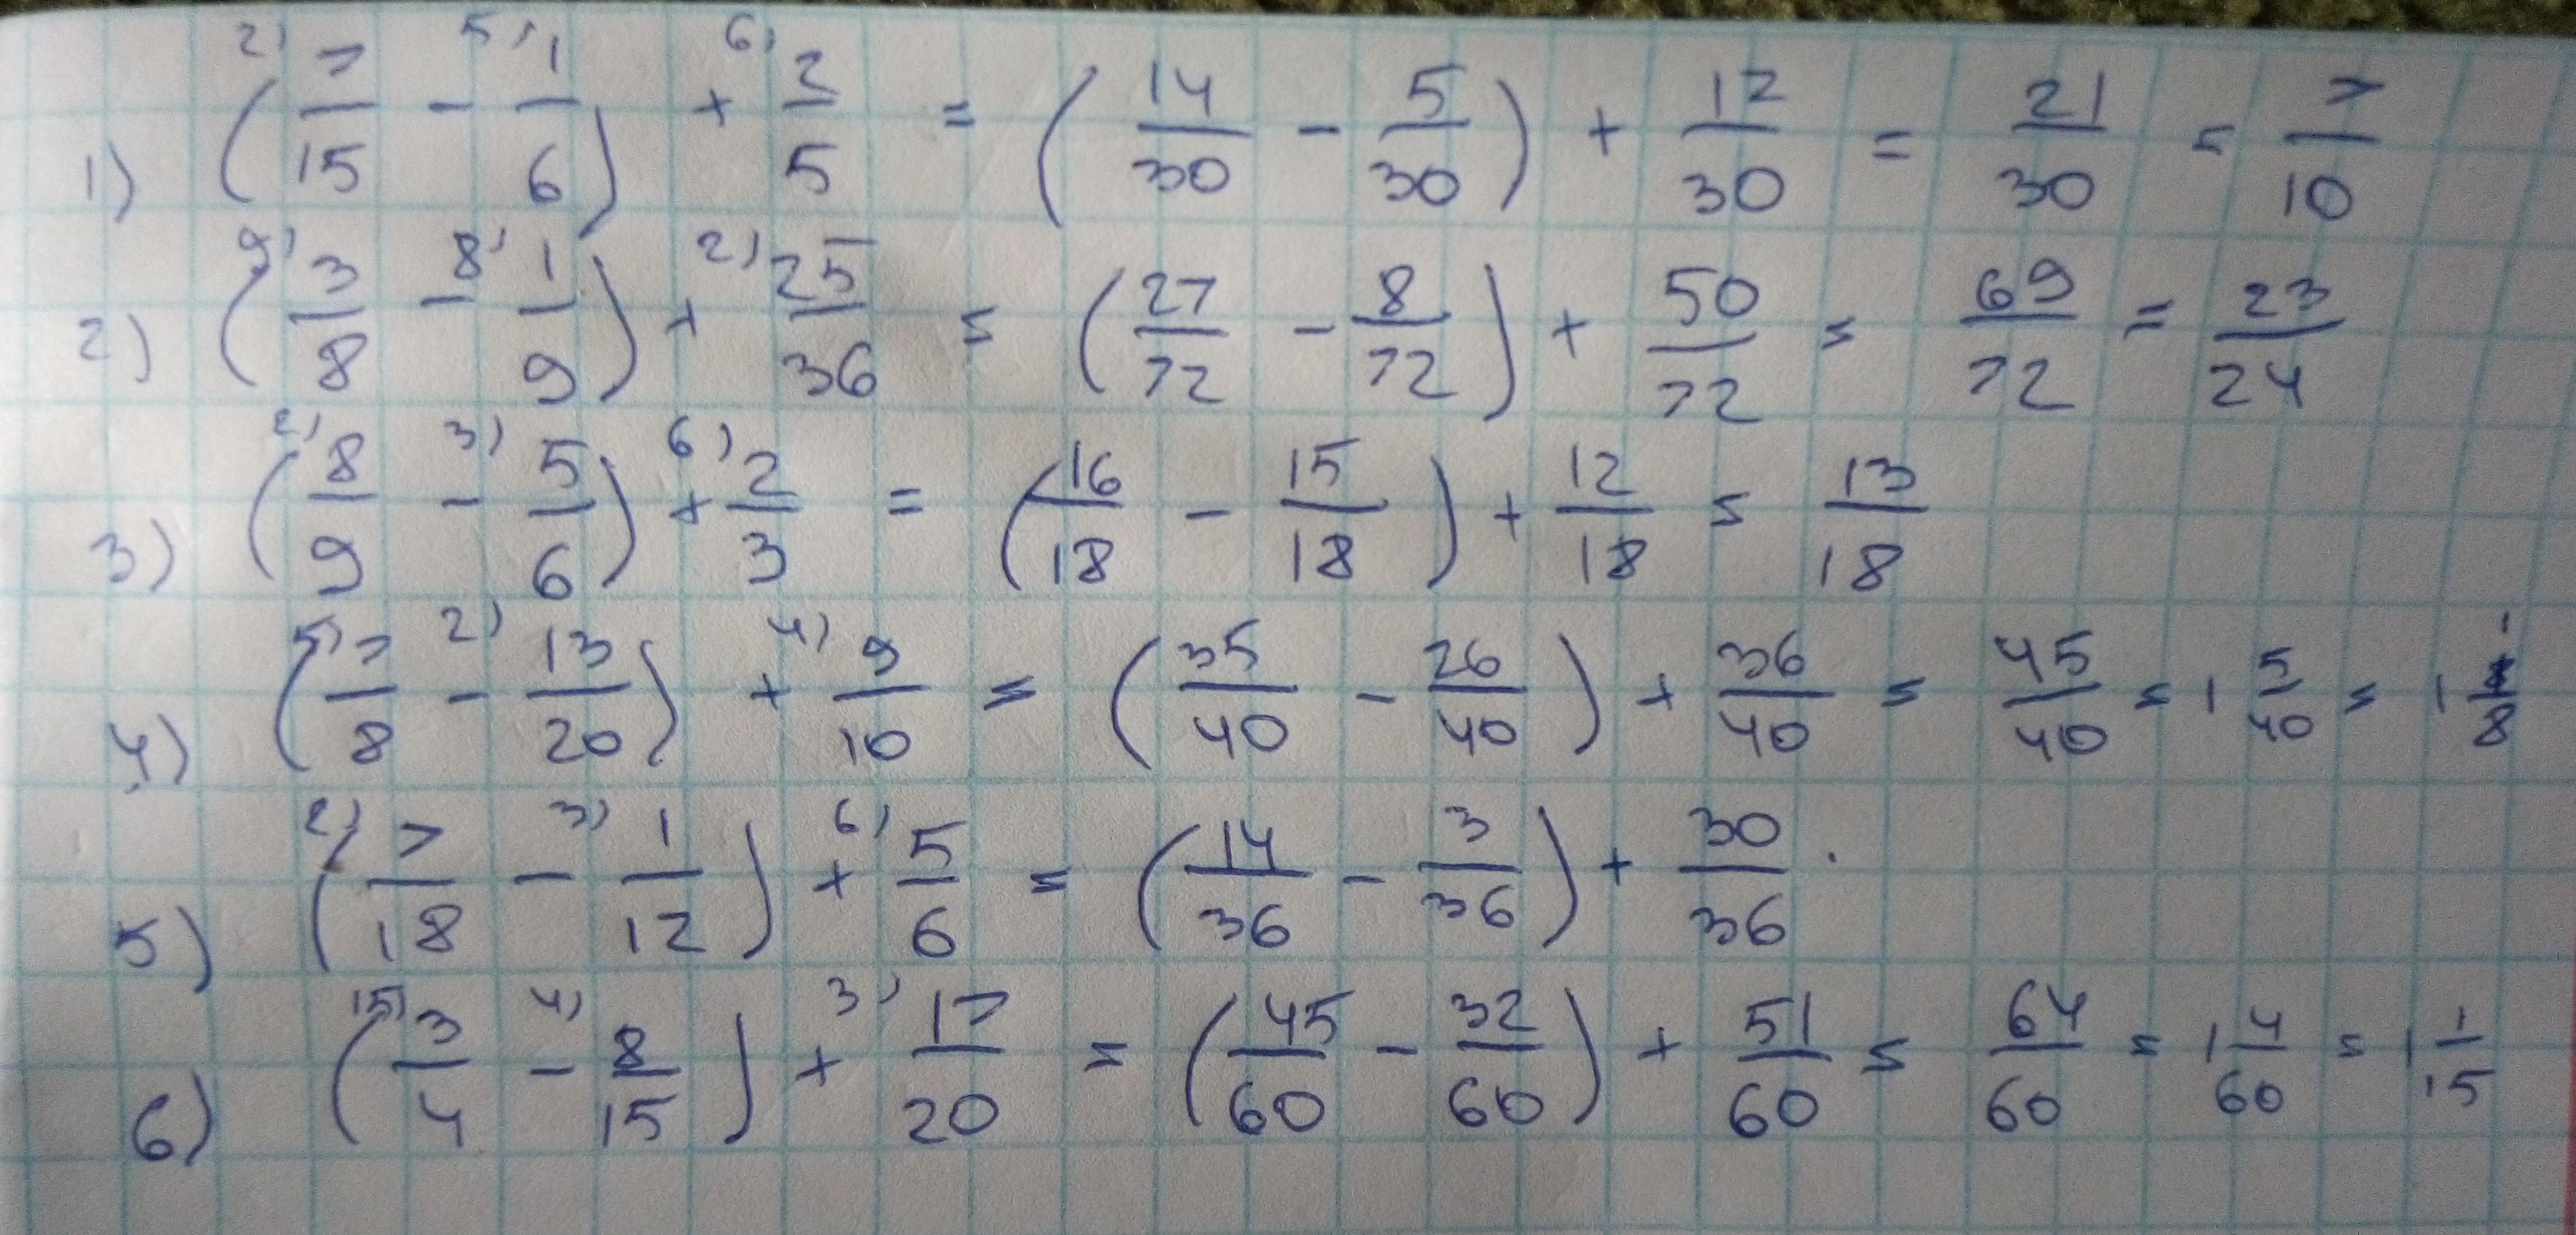 1) (²⁾7/15 - ⁵⁾1/6) + ⁶⁾2/5 = (14/30 - 5/30) + 12/30 = 21/30 = 7/10
2) (⁹⁾3/8 - ⁸⁾1/9) + ²⁾25/36 = (27/72 - 8/72) + 50/72 = 69/72 = 23/24
3) (²⁾8/9 - ³⁾5/6) + ⁶⁾2/3 = (16/18 - 15/18) + 12/18 = 13/18
4) (⁵⁾7/8 - ²⁾13/20) + ⁴⁾9/10 = (35/40 - 26/40) + 36/40 = 45/40 = 1 5/40 = 1 1/8
5) (²⁾7/18 - ³⁾1/12) + ⁶⁾5/6 = (14/36 - 3/36) + 30/36 .
6) (¹⁵⁾3/4 - ⁴⁾8/15) + ³⁾17/20 = (45/60 - 32/60) + 51/60 = 64/60 = 1 4/60 = 1 1/15